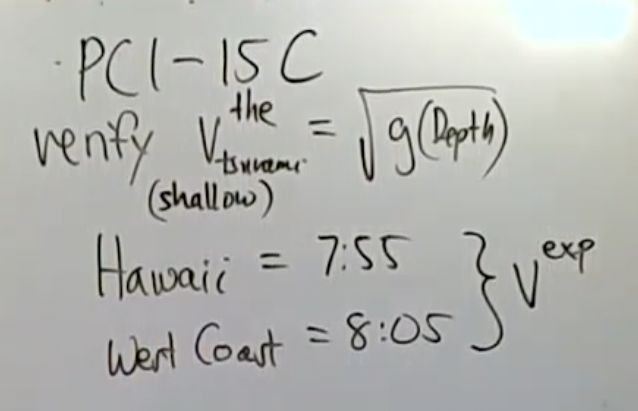 PC1-15C
verify V the tsunami = √g(Depth)
(shallow)
Hawaii = 7:55
West Coast = 8:05 } V exp